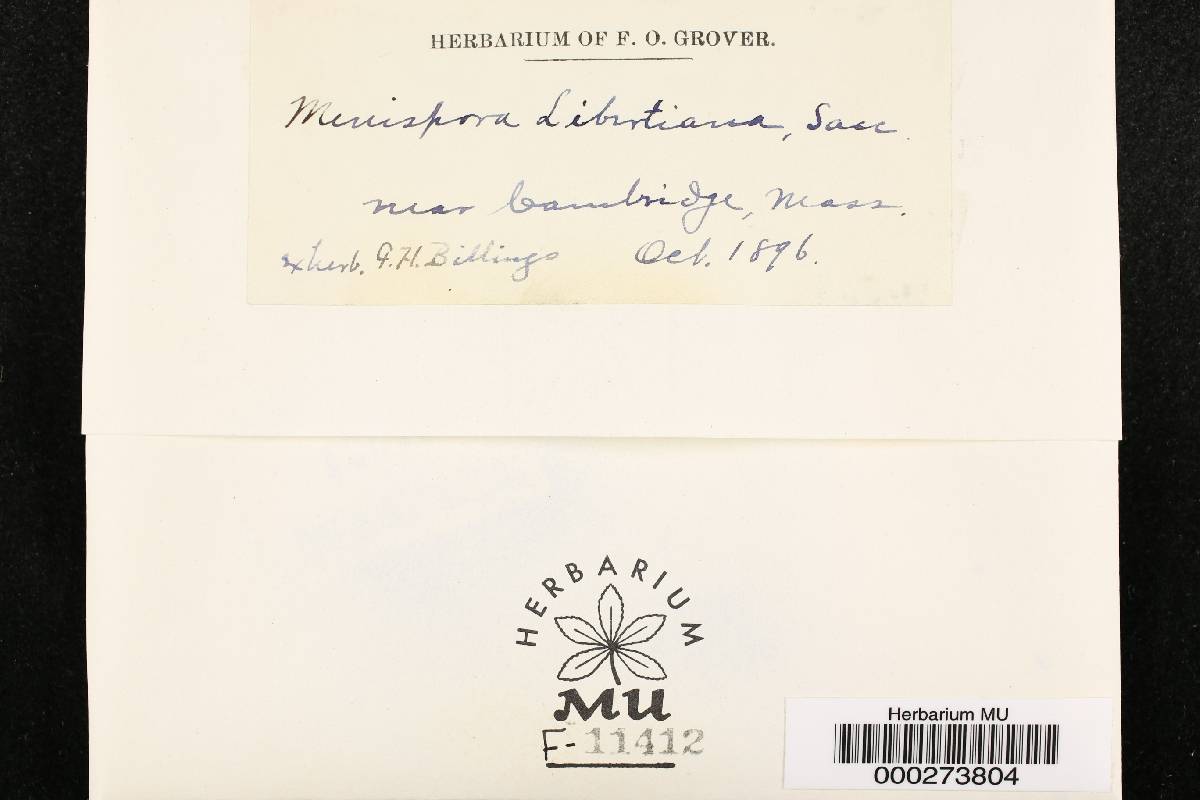 HERBARIUM OF F. O. GROVER.
Menispora Libertiana, Sacc.
near Cambridge, Mass.
ex herb. F. H. Billings Oct. 1896.
HERBARIUM
MU
F-11412
Herbarium MU
000273804